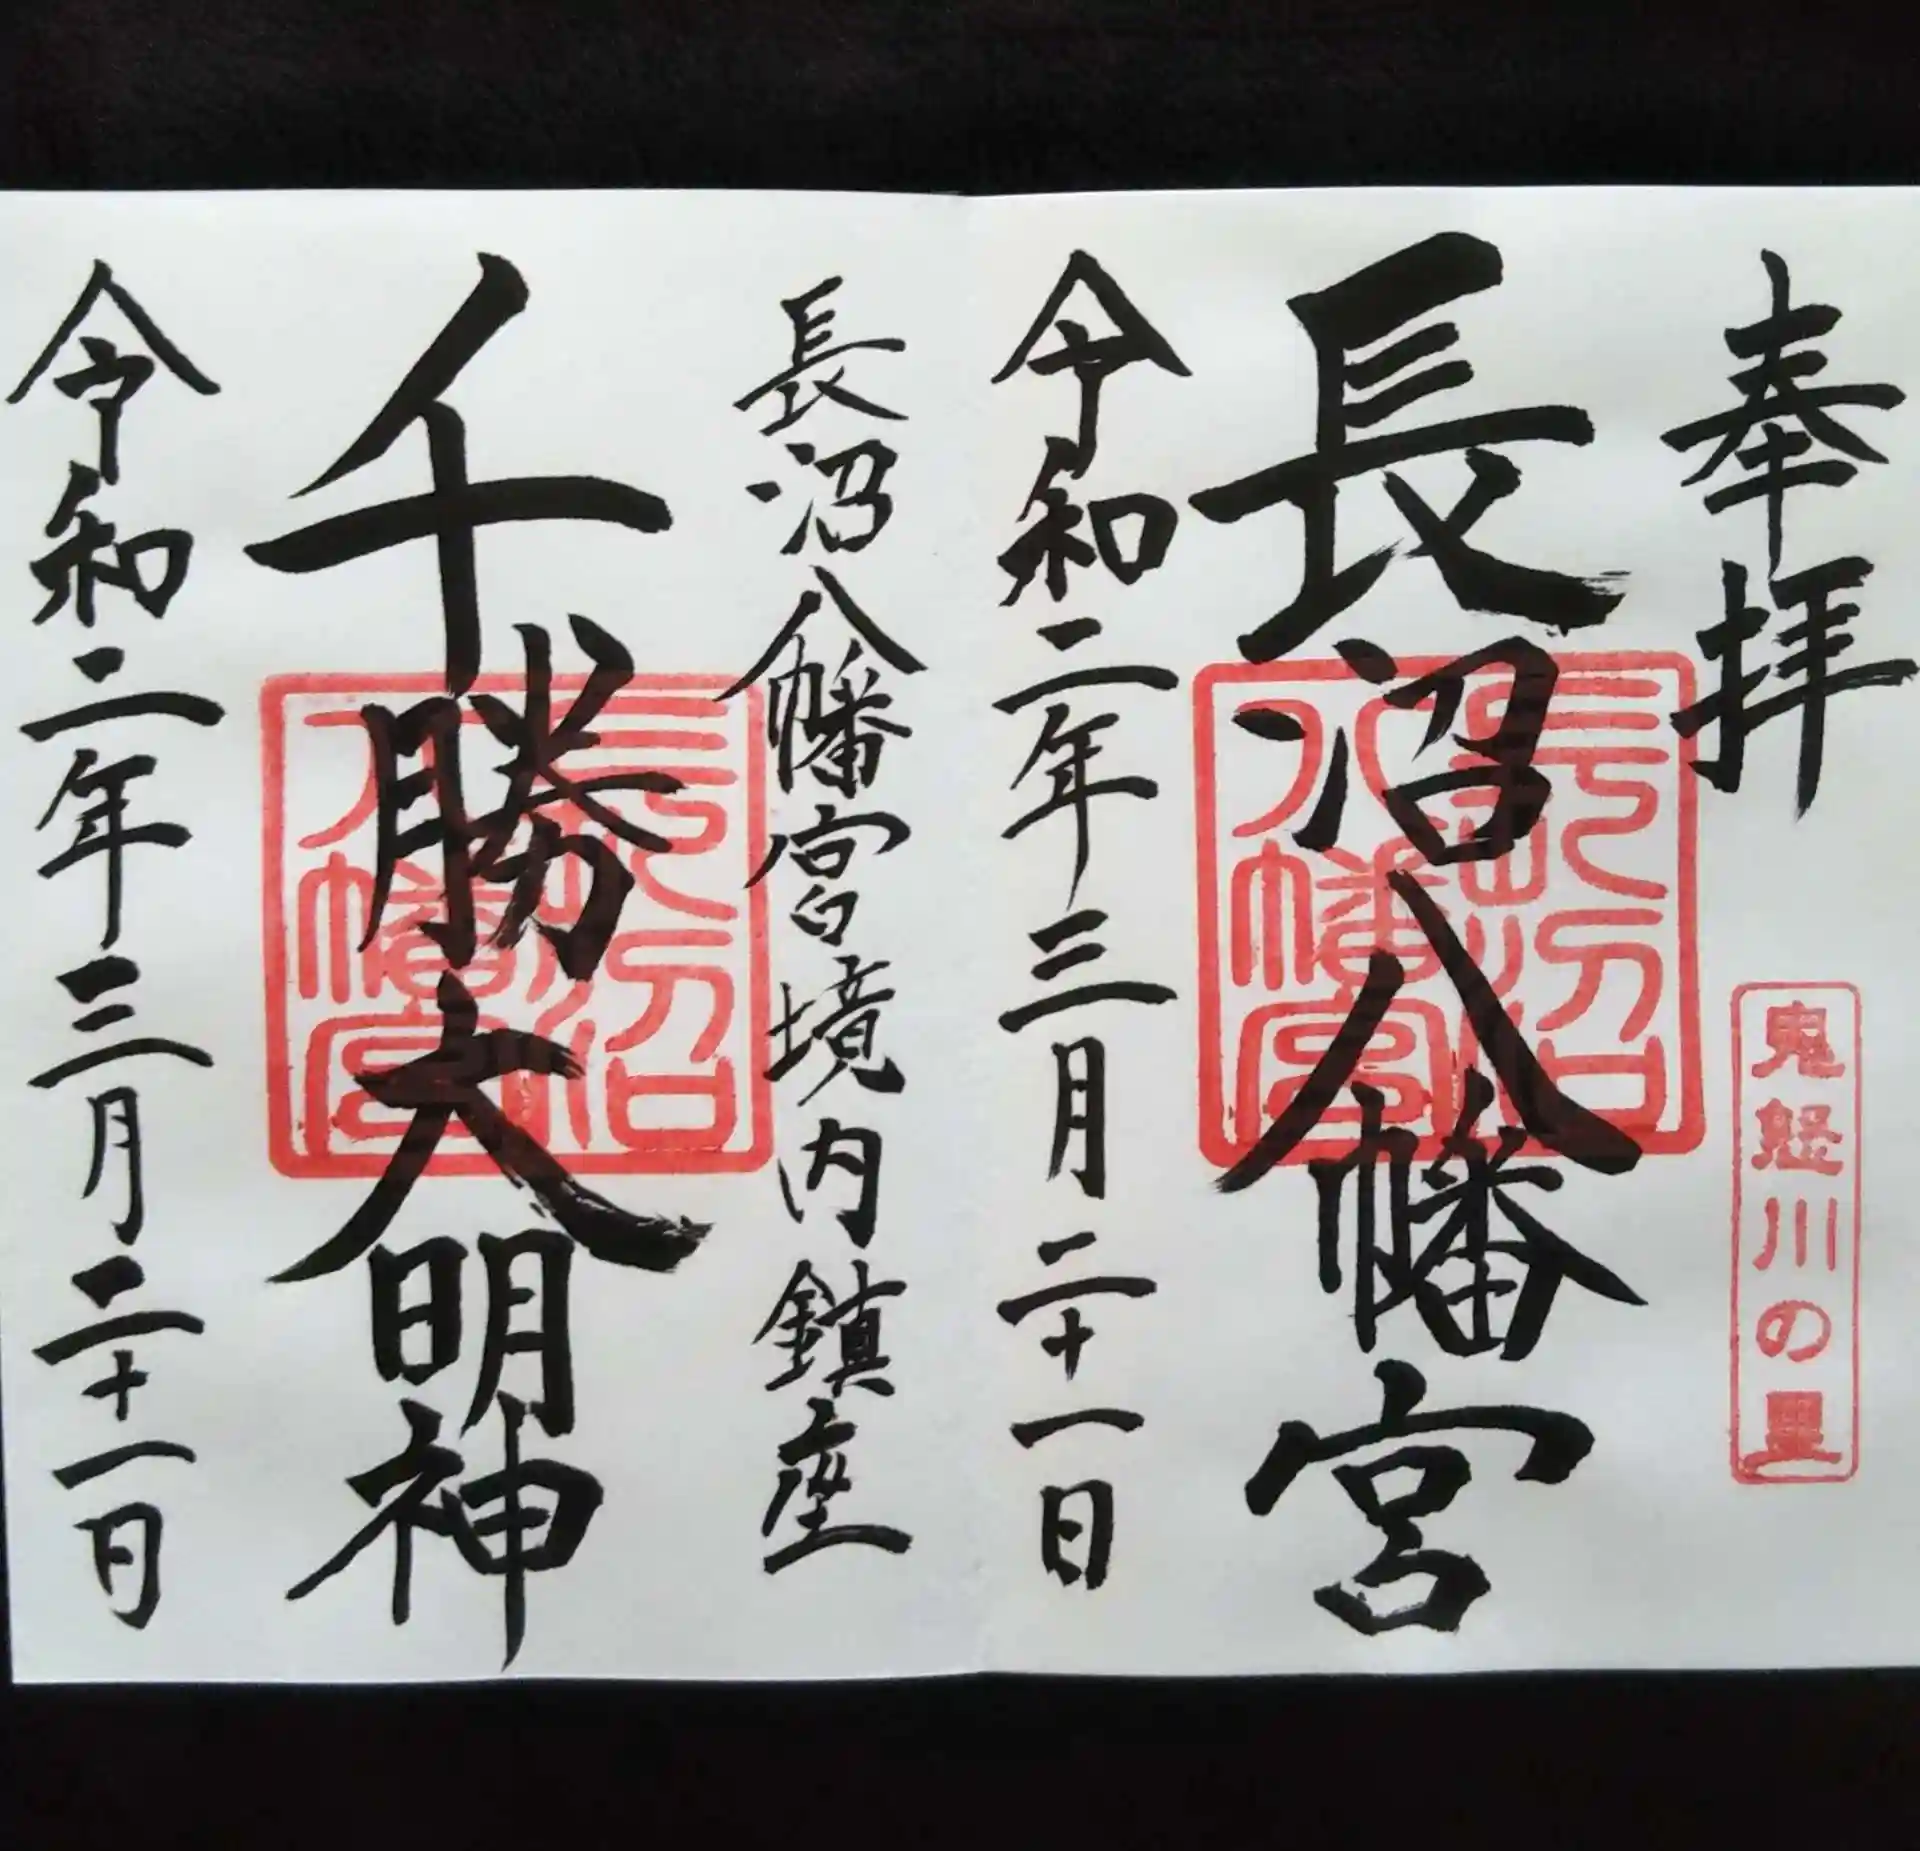 奉拝
鬼怒川の里
長沼八幡宮
長沼
八幡宮
令和二年三月二十一日
長沼八幡宮境内鎮座
千勝大明神
長沼
八幡宮
令和二年三月二十一日